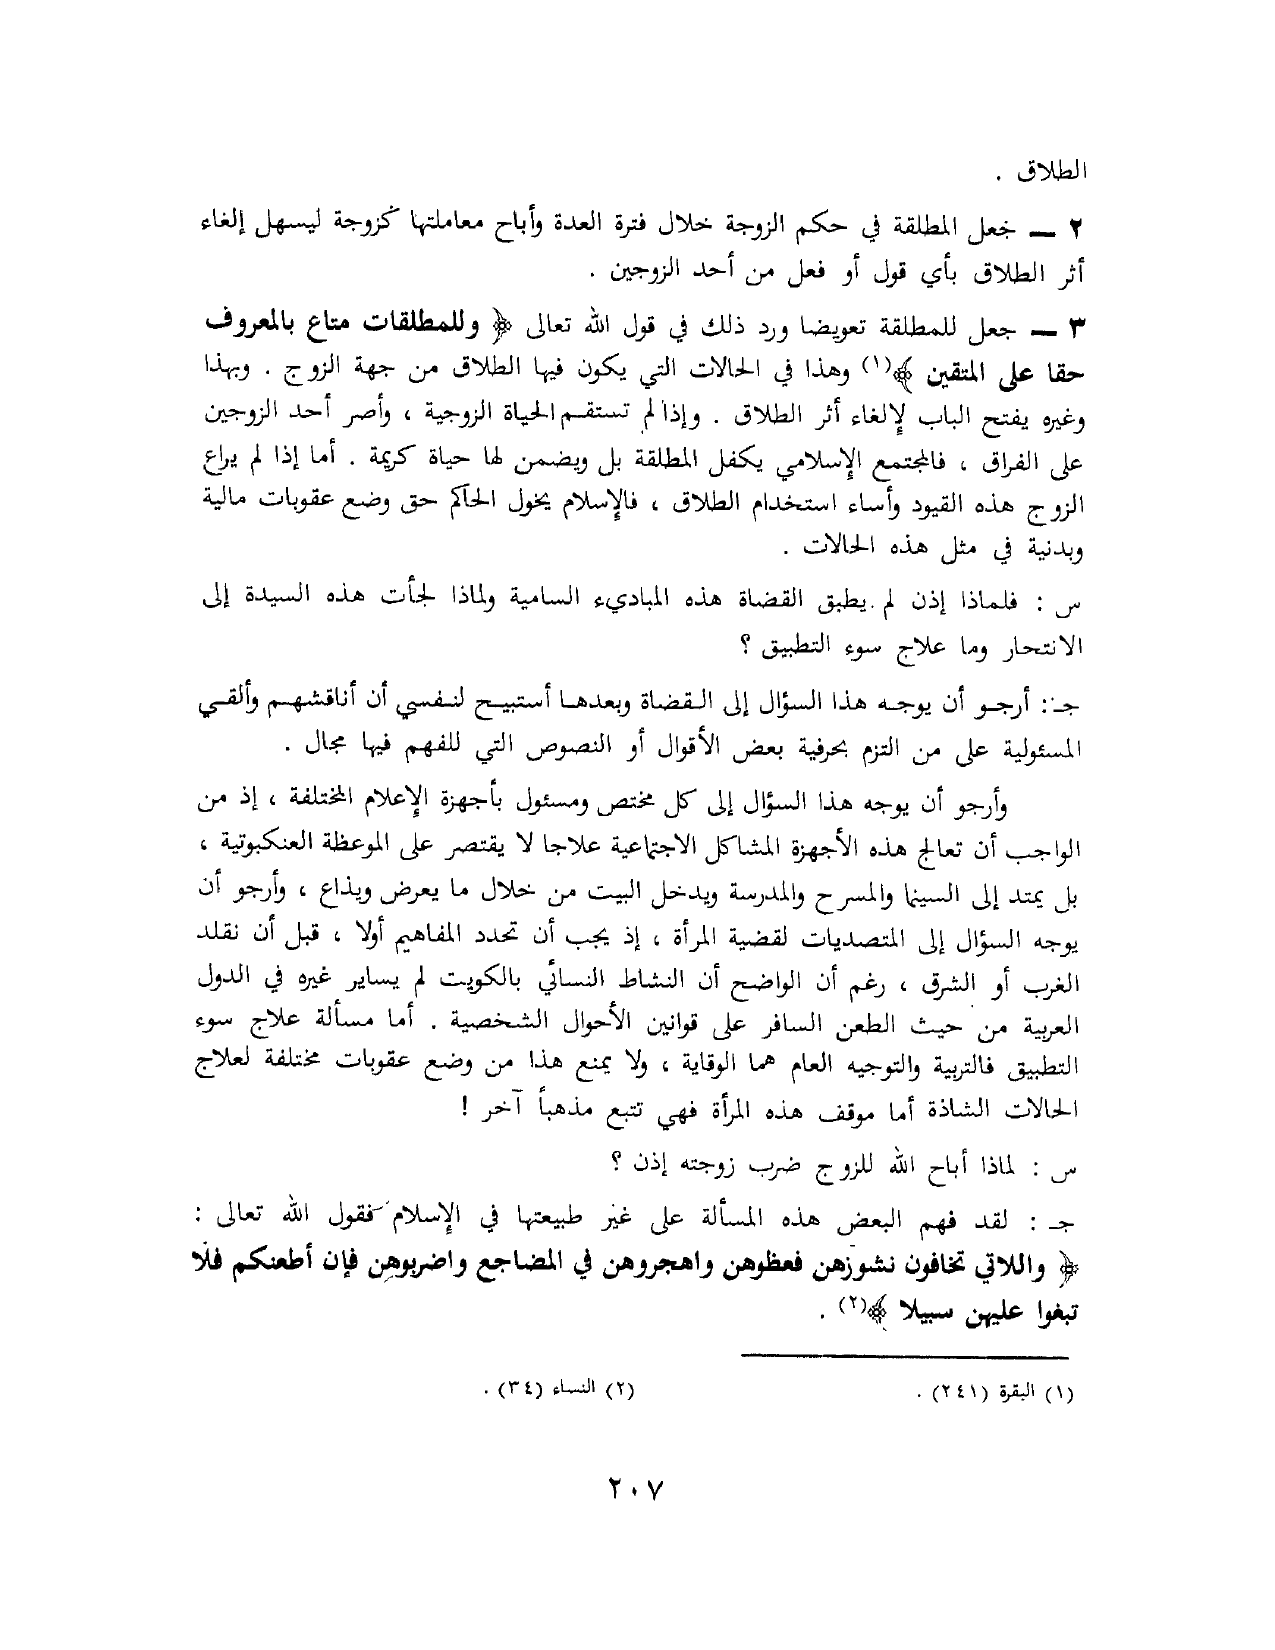 الطلاق .
٢ ــ جعل المطلقة في حكم الزوجة خلال فترة العدة وأباح معاملتها كزوجة ليسهل إلغاء
أثر الطلاق بأي قول أو فعل من أحد الزوجين .
٣ ــ جعل للمطلقة تعويضا ورد ذلك في قول الله تعالى ﴿ وللمطلقات متاع بالمعروف
حقا على المتقين ﴾(١) وهذا في الحالات التي يكون فيها الطلاق من جهة الزوج . وبهذا
وغيره يفتح الباب لإلغاء أثر الطلاق . وإذا لم تستقم الحياة الزوجية ، وأصر أحد الزوجين
على الفراق ، فالمجتمع الإسلامي يكفل المطلقة بل ويضمن لها حياة كريمة . أما إذا لم يراع
الزوج هذه القيود وأساء استخدام الطلاق ، فالإسلام يخول الحاكم حق وضع عقوبات مالية
وبدنية في مثل هذه الحالات .
س : فلماذا إذن لم يطبق القضاة هذه المباديء السامية ولماذا لجأت هذه السيدة إلى
الانتحار وما علاج سوء التطبيق ؟
جـ : أرجو أن يوجه هذا السؤال إلى القضاة وبعدها أستبيح لنفسي أن أناقشهم وألقي
المسئولية على من التزم بحرفية بعض الأقوال أو النصوص التي للفهم فيها مجال .
وأرجو أن يوجه هذا السؤال إلى كل مختص ومسئول بأجهزة الإعلام المختلفة ، إذ من
الواجب أن تعالج هذه الأجهزة المشاكل الاجتماعية علاجا لا يقتصر على الموعظة العنكبوتية ،
بل يمتد إلى السينما والمسرح والمدرسة ويدخل البيت من خلال ما يعرض ويذاع ، وأرجو أن
يوجه السؤال إلى المتصديات لقضية المرأة ، إذ يجب أن تحدد المفاهيم أولا ، قبل أن نقلد
الغرب أو الشرق ، رغم أن الواضح أن النشاط النسائي بالكويت لم يساير غيره في الدول
العربية من حيث الطعن السافر على قوانين الأحوال الشخصية . أما مسألة علاج سوء
التطبيق فالتربية والتوجيه العام هما الوقاية ، ولا يمنع هذا من وضع عقوبات مختلفة لعلاج
الحالات الشاذة أما موقف هذه المرأة فهي تتبع مذهبأ آخر !
س : لماذا أباح الله للزوج ضرب زوجته إذن ؟
جـ : لقد فهم البعض هذه المسألة على غير طبيعتها في الإسلام فقول الله تعالى :
﴿ واللاتي تخافون نشوزهن فعظوهن واهجروهن في المضاجع واضربوهن فإن أطعنكم فلا
تبغوا عليهن سبيلا ﴾(٢) .
(١) البقرة (٢٤١) .
(٢) النساء (٣٤) .
٢٠٧